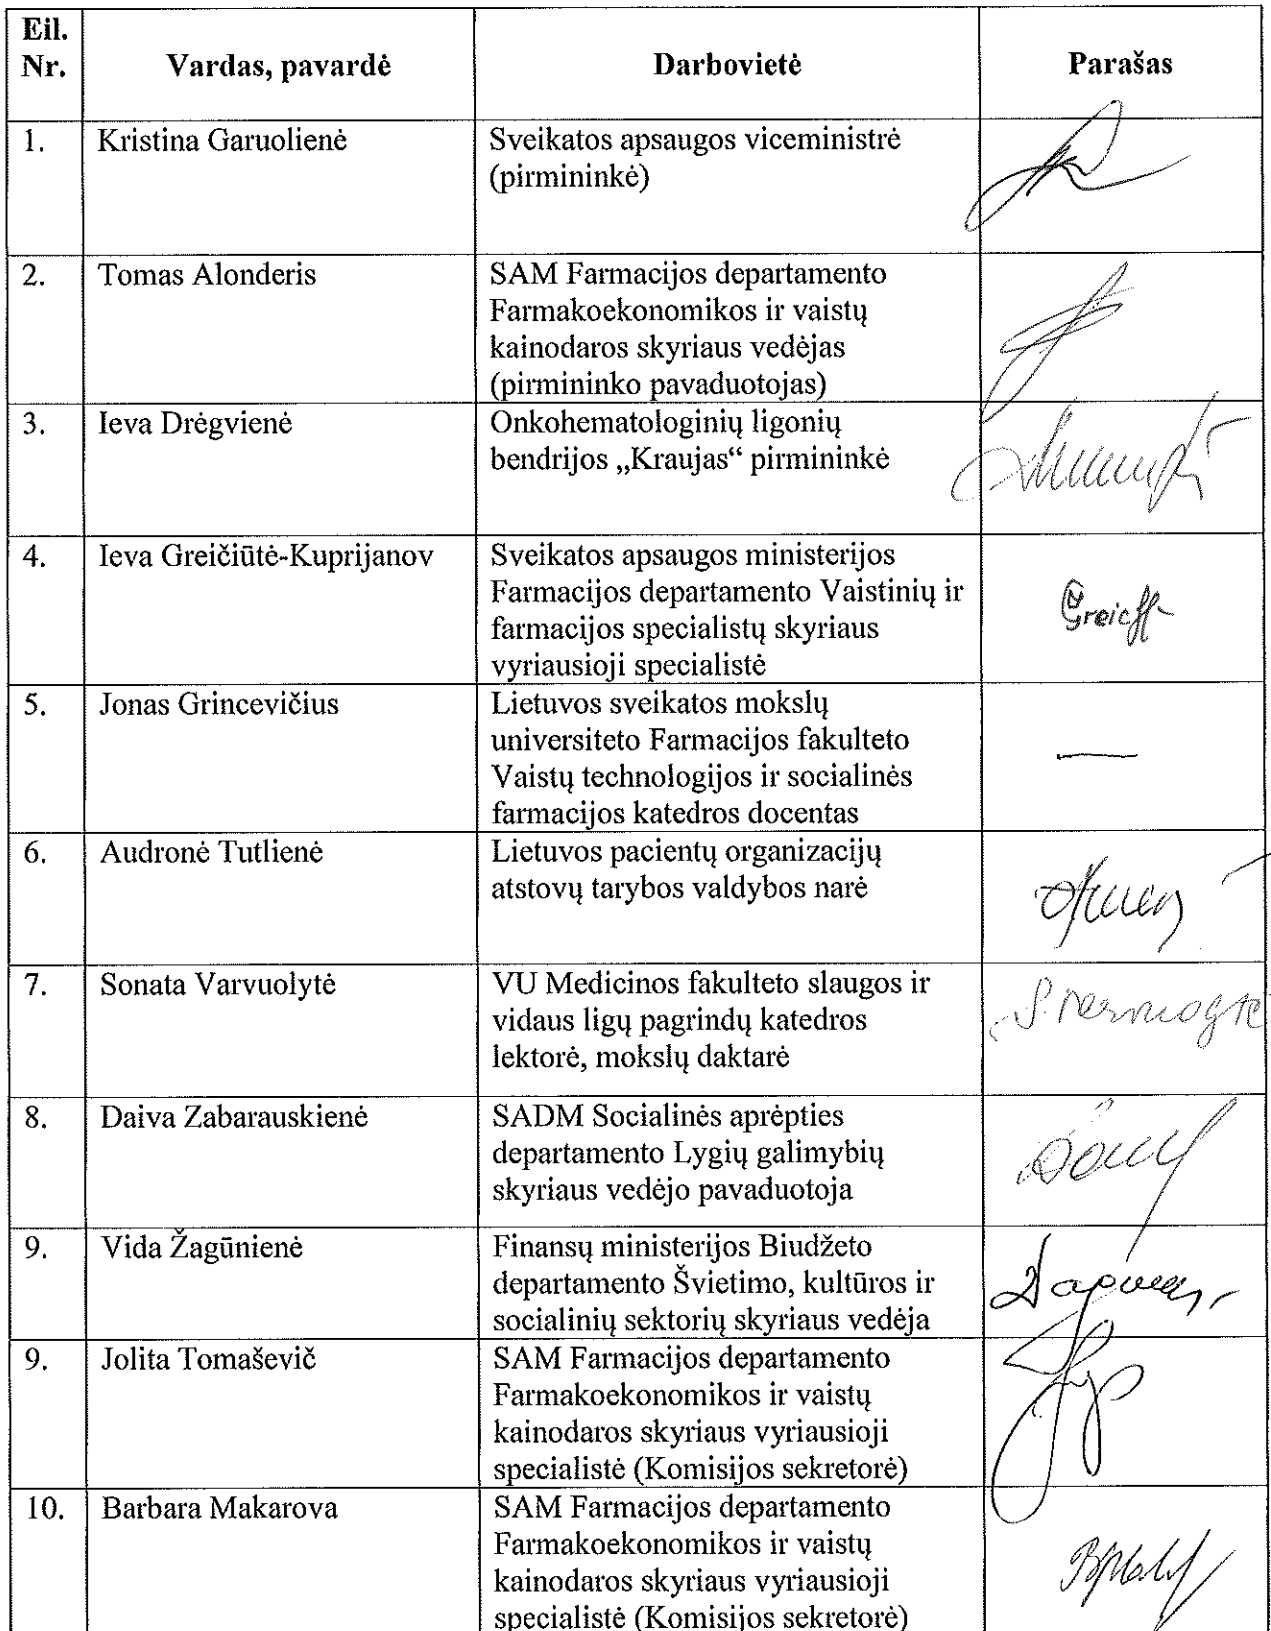 Eil. Nr. Vardas, pavardė Darbovietė Parašas
1. Kristina Garuolienė Sveikatos apsaugos viceministrė
(pirmininkė)
2. Tomas Alonderis SAM Farmacijos departamento
Farmakoekonomikos ir vaistų
kainodaros skyriaus vedėjas
(pirmininko pavaduotojas)
3. Ieva Drėgvienė Onkohematologinių ligonių
bendrijos „Kraujas“ pirmininkė
4. Ieva Greičiūtė-Kuprijanov Sveikatos apsaugos ministerijos
Farmacijos departamento Vaistinių ir
farmacijos specialistų skyriaus
vyriausioji specialistė
5. Jonas Grincevičius Lietuvos sveikatos mokslų
universiteto Farmacijos fakulteto
Vaistų technologijos ir socialinės
farmacijos katedros docentas
6. Audronė Tutlienė Lietuvos pacientų organizacijų
atstovų tarybos valdybos narė
7. Sonata Varvuolytė VU Medicinos fakulteto slaugos ir
vidaus ligų pagrindų katedros
lektorė, mokslų daktarė
8. Daiva Zabarauskienė SADM Socialinės aprėpties
departamento Lygių galimybių
skyriaus vedėjo pavaduotoja
9. Vida Žagūnienė Finansų ministerijos Biudžeto
departamento Švietimo, kultūros ir
socialinių sektorių skyriaus vedėja
9. Jolita Tomaševič SAM Farmacijos departamento
Farmakoekonomikos ir vaistų
kainodaros skyriaus vyriausioji
specialistė (Komisijos sekretorė)
10. Barbara Makarova SAM Farmacijos departamento
Farmakoekonomikos ir vaistų
kainodaros skyriaus vyriausioji
specialistė (Komisijos sekretorė)